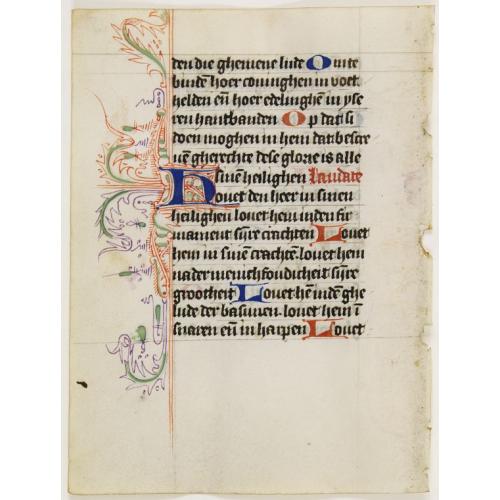 den die ghemene lude O mte
bindē hoer coninghen in voet
helden eñ hoer edelinghē in yse
ren hantbanden O p dat si
doen moghen in hem dat bescre
uē gherechte dese glorie is alle
sinē heilighen Laudate
Louet den heer in sinen
heilighen louet hem inden fir
mament sijre crachten Louet
hem in sinē crachtē louet hem
nader menichfoudicheit sijre
grootheit Louet hē indē ghe
lude der basunen louet hem ī
snaren eñ in harpen Louet